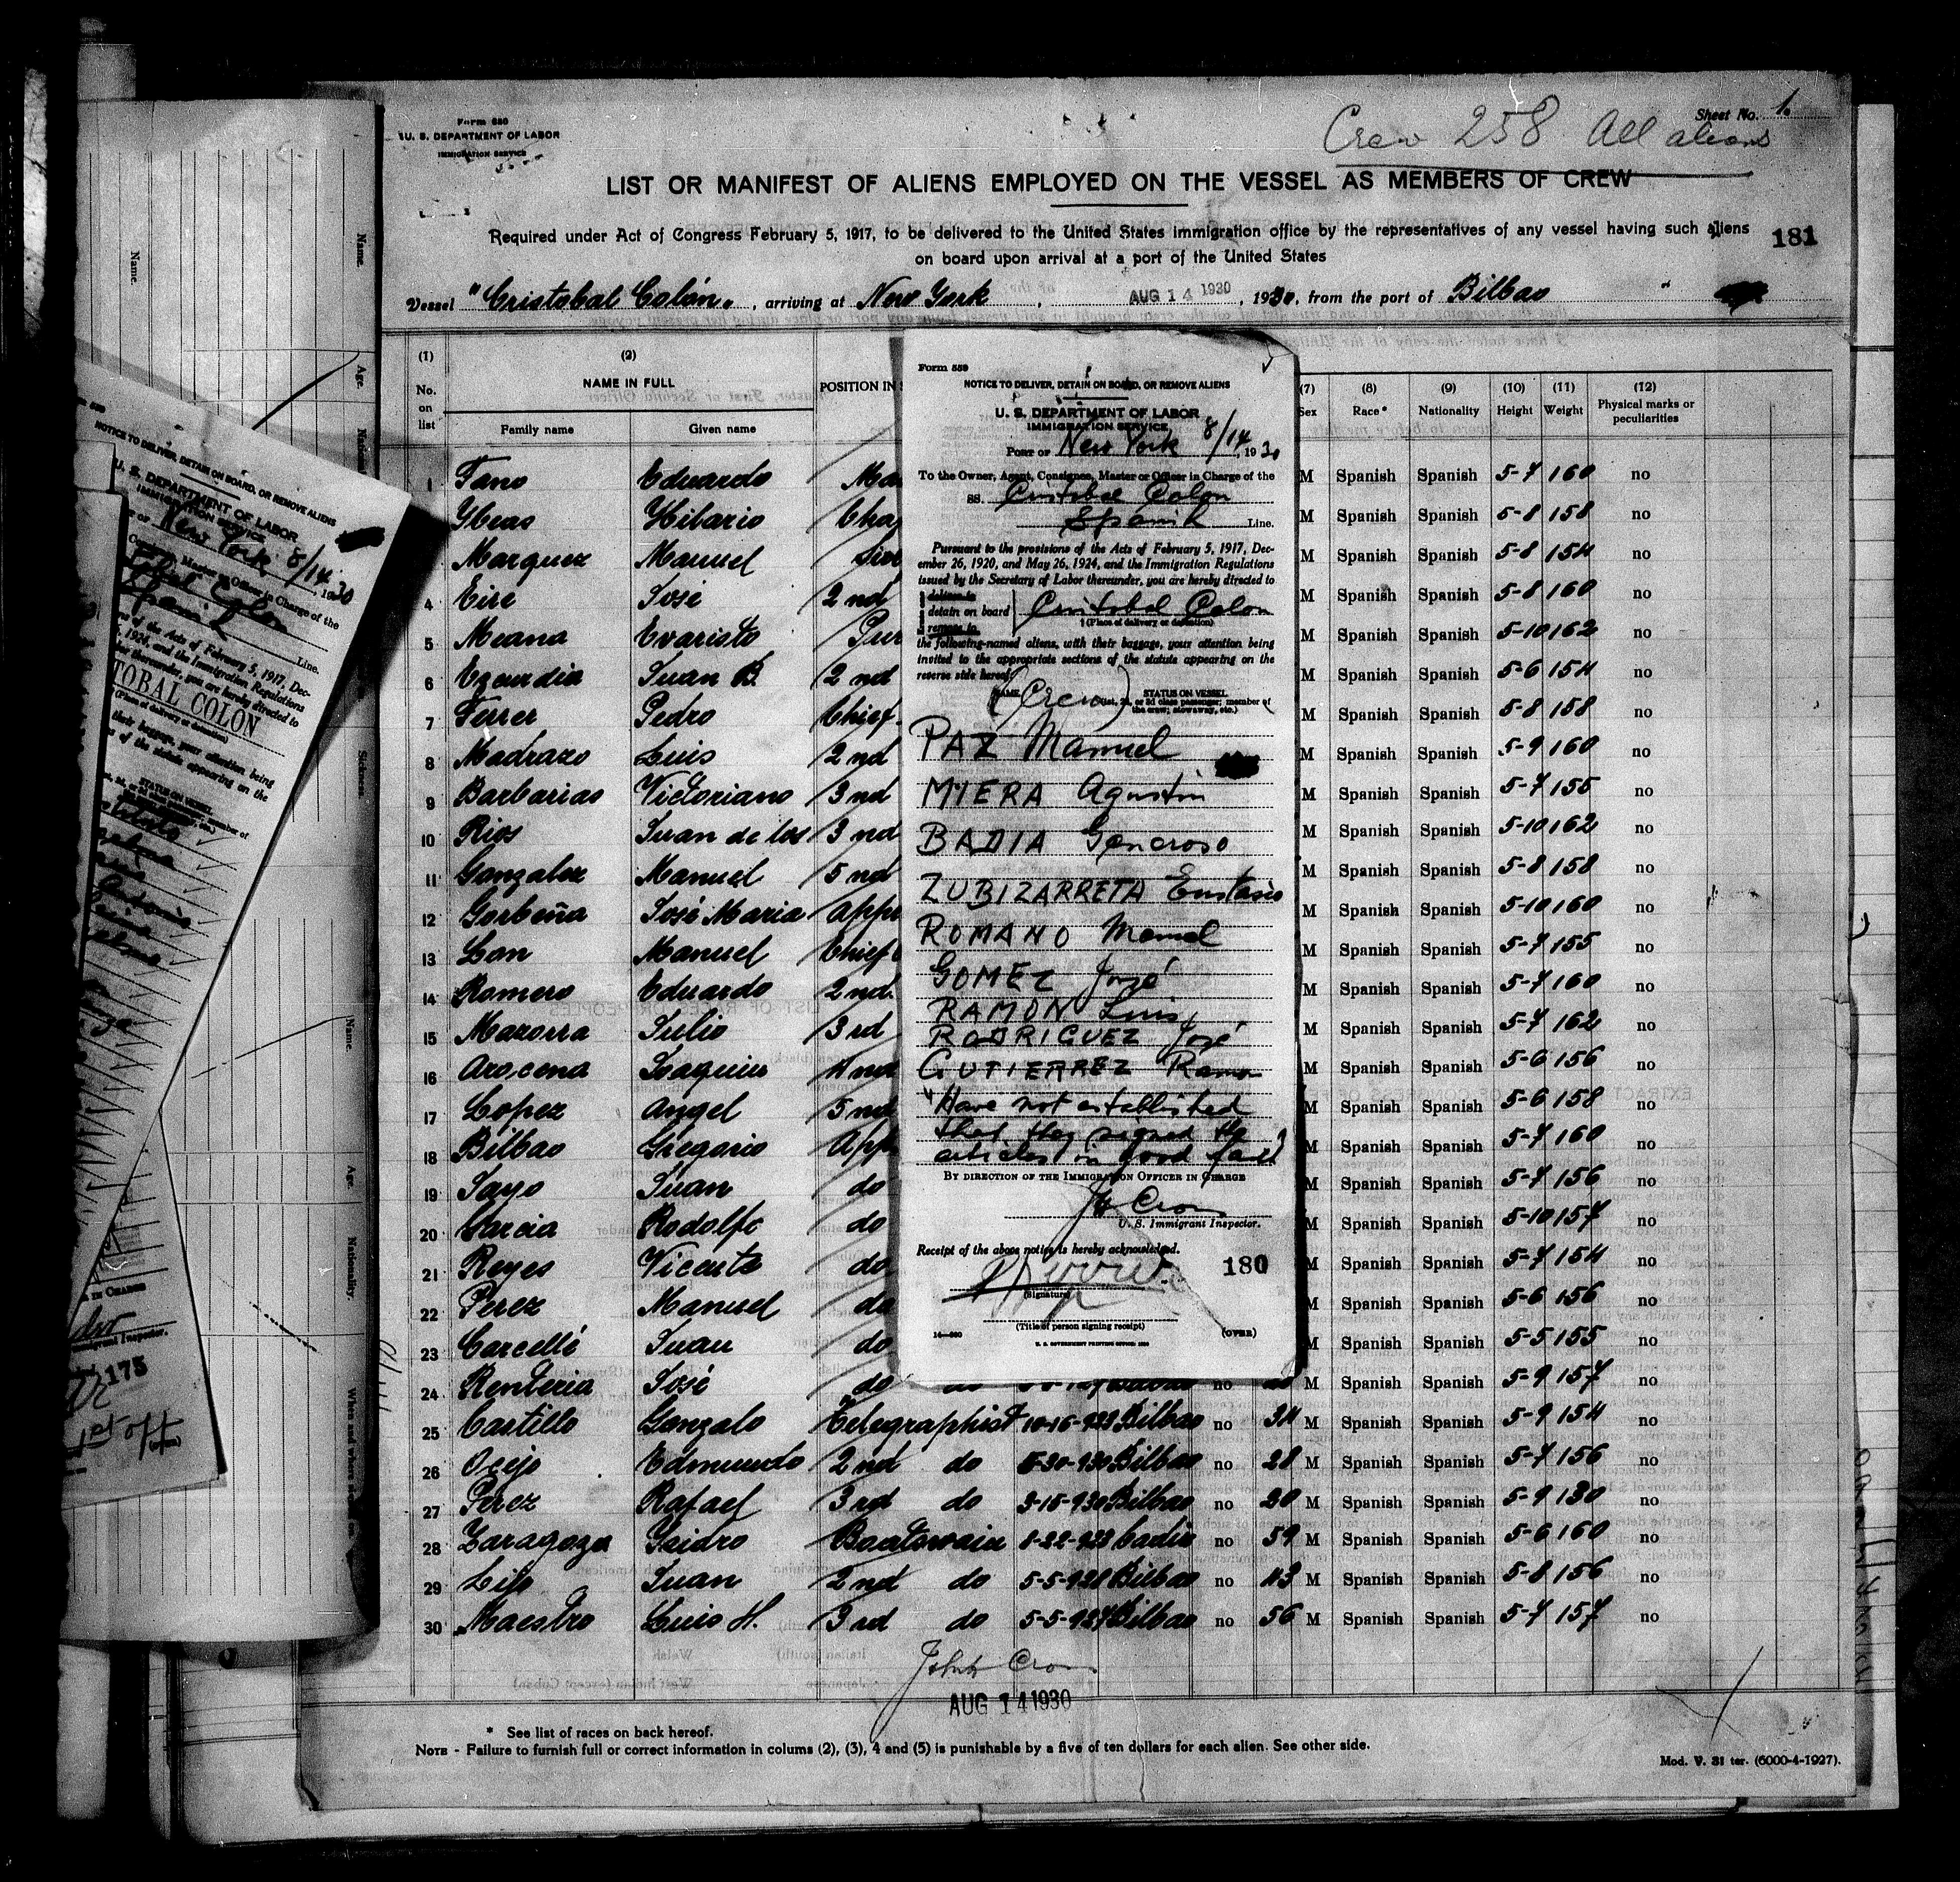 Form 680
U. S. DEPARTMENT OF LABOR
IMMIGRATION SERVICE
Sheet No. 1.
Crew 258 All aliens
LIST OR MANIFEST OF ALIENS EMPLOYED ON THE VESSEL AS MEMBERS OF CREW
Required under Act of Congress February 5, 1917, to be delivered to the United States immigration office by the representatives of any vessel having such aliens
on board upon arrival at a port of the United States
181
Vessel "Cristobal Colón", arriving at New York, AUG 14 1930, 1930, from the port of Bilbao
(1) (2) (7) (8) (9) (10) (11) (12)
No. on list NAME IN FULL POSITION IN Sex Race* Nationality Height Weight Physical marks or peculiarities
Family name Given name
1 Fano Eduardo M Spanish Spanish 5-7 160 no
Ybeas Hilario M Spanish Spanish 5-8 158 no
Marquez Manuel M Spanish Spanish 5-8 154 no
4 José 2nd M Spanish Spanish 5-8 160 no
5 Meana Evaristo Pur M Spanish Spanish 5-10 162 no
6 Eguardia Juan B. 2nd M Spanish Spanish 5-6 154 no
7 Ferrer Pedro Chief M Spanish Spanish 5-8 158 no
8 Madrazo Luis 2nd M Spanish Spanish 5-9 160 no
9 Barbarias Victoriano 3nd M Spanish Spanish 5-7 155 no
10 Rios Juan de los 3nd M Spanish Spanish 5-10 162 no
11 Gonzalez Manuel 5nd M Spanish Spanish 5-8 158 no
12 Gorbeña José Maria Appr M Spanish Spanish 5-10 160 no
13 Lan Manuel Chief M Spanish Spanish 5-7 155 no
14 Romero Eduardo 2nd. M Spanish Spanish 5-7 160 no
15 Mazorra Julio 3rd M Spanish Spanish 5-7 162 no
16 Arocena Joaquin 4nd M Spanish Spanish 5-6 156 no
17 Lopez Angel 5nd M Spanish Spanish 5-6 158 no
18 Bilbao Gregorio App M Spanish Spanish 5-7 160 no
19 Sayo Juan do M Spanish Spanish 5-7 156 no
20 Garcia Rodolfo do M Spanish Spanish 5-10 157 no
21 Reyes Vicente do M Spanish Spanish 5-7 154 no
22 Perez Manuel do M Spanish Spanish 5-6 156 no
23 Carcellé Juan do M Spanish Spanish 5-5 155 no
24 Renteria José do no M Spanish Spanish 5-9 157 no
25 Castillo Gonzalo Telegraphist 10-16-923 Bilbao no 34 M Spanish Spanish 5-9 154 no
26 Ocejo Edmundo 2nd do 5-30-930 Bilbao no 28 M Spanish Spanish 5-7 156 no
27 Perez Rafael 3rd do 3-15-930 Bilbao no 20 M Spanish Spanish 5-9 130 no
28 Zaragoza Isidro Boatswain 8-22-928 Cadiz no 59 M Spanish Spanish 5-6 160 no
29 Juan 2nd do 5-5-928 Bilbao no 43 M Spanish Spanish 5-8 156 no
30 Maestro Luis H. 3rd do 5-5-927 Bilbao no 56 M Spanish Spanish 5-7 157 no
John Cron
AUG 14 1930
* See list of races on back hereof.
NOTE - Failure to furnish full or correct information in colums (2), (3), 4 and (5) is punishable by a five of ten dollars for each alien. See other side.
Mod. V. 31 ter. (6000-4-1927).
Form 559
NOTICE TO DELIVER, DETAIN ON BOARD, OR REMOVE ALIENS
U. S. DEPARTMENT OF LABOR
IMMIGRATION SERVICE
PORT OF New York 8/14, 1930
To the Owner, Agent, Consignee, Master or Officer in Charge of the
SS. Cristobal Colon
Spanish Line.
Pursuant to the provisions of the Acts of February 5, 1917, Dec-
ember 26, 1920, and May 26, 1924, and the Immigration Regulations
issued by the Secretary of Labor thereunder, you are hereby directed to
deliver to
detain on board Cristobal Colon
remove to
†(Place of delivery or detention)
the following-named aliens, with their baggage, your attention being
invited to the appropriate sections of the statute appearing on the
reverse side hereof
NAME (Crew) STATUS ON VESSEL
(1st, 2d, or 3d class passenger; member of
the crew; stowaway, etc.)
PAZ Manuel
MIERA Agustin
BADIA Generoso
ZUBIZARRETA Eustasio
ROMANO Manuel
GOMEZ José
RAMON Luis
RODRIGUEZ José
GUTIERREZ Ramon
"Have not established
that they signed the
articles in good faith"
BY DIRECTION OF THE IMMIGRATION OFFICER IN CHARGE
J Cron
U. S. Immigrant Inspector.
Receipt of the above notice is hereby acknowledged.
180
(Signature)
(Title of person signing receipt)
14—680 (OVER)
U. S. GOVERNMENT PRINTING OFFICE: 1930
NOTICE TO DELIVER, DETAIN ON BOARD, OR REMOVE ALIENS
U. S. DEPARTMENT OF LABOR
IMMIGRATION SERVICE
New York 8/14, 1930
Master or Officer in Charge of the
Colon
Line.
of the Acts of February 5, 1917, Dec-
1924, and the Immigration Regulations
thereunder, you are hereby directed to
TOBAL COLON
(Place of delivery or detention)
their baggage, your attention being
of the statute appearing on the
STATUS ON VESSEL
member of
etc.)
IN CHARGE
Immigrant Inspector.
175
1st off
Name.
Name.
Age.
Sickness.
Name.
Age.
Nationality.